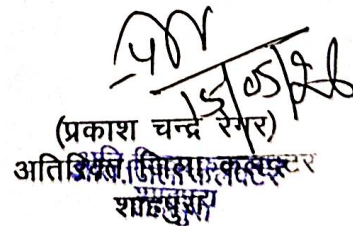 15/05/26
(प्रकाश चन्द्र रेगर)
अतिरिक्त जिला कलक्टर
शाहपुरा